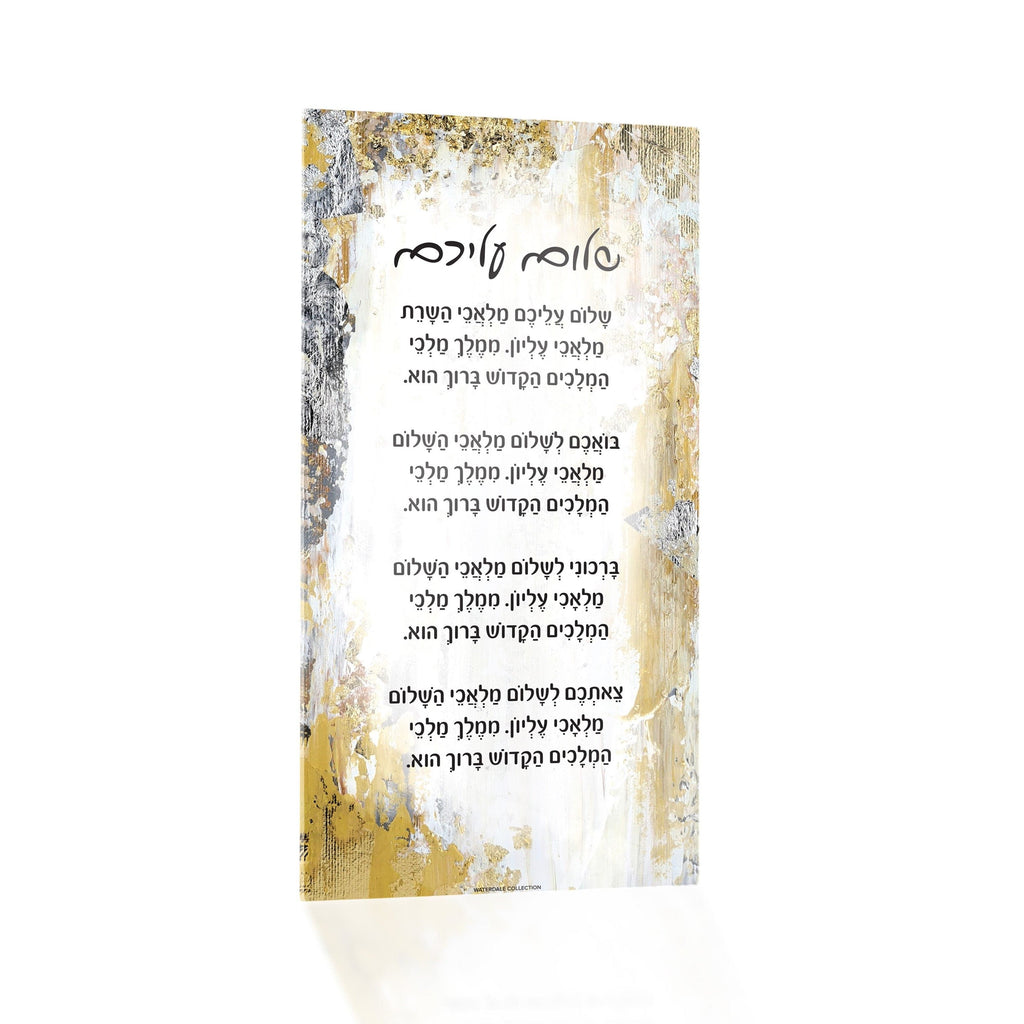 שלום עליכם
שָׁלוֹם עֲלֵיכֶם מַלְאֲכֵי הַשָּׁרֵת
מַלְאֲכֵי עֶלְיוֹן. מִמֶּלֶךְ מַלְכֵי
הַמְּלָכִים הַקָּדוֹשׁ בָּרוּךְ הוּא.
בּוֹאֲכֶם לְשָׁלוֹם מַלְאֲכֵי הַשָּׁלוֹם
מַלְאֲכֵי עֶלְיוֹן. מִמֶּלֶךְ מַלְכֵי
הַמְּלָכִים הַקָּדוֹשׁ בָּרוּךְ הוּא.
בָּרְכוּנִי לְשָׁלוֹם מַלְאֲכֵי הַשָּׁלוֹם
מַלְאָכֵי עֶלְיוֹן. מִמֶּלֶךְ מַלְכֵי
הַמְּלָכִים הַקָּדוֹשׁ בָּרוּךְ הוּא.
צֵאתְכֶם לְשָׁלוֹם מַלְאֲכֵי הַשָּׁלוֹם
מַלְאָכֵי עֶלְיוֹן. מִמֶּלֶךְ מַלְכֵי
הַמְּלָכִים הַקָּדוֹשׁ בָּרוּךְ הוּא.
WATERDALE COLLECTION